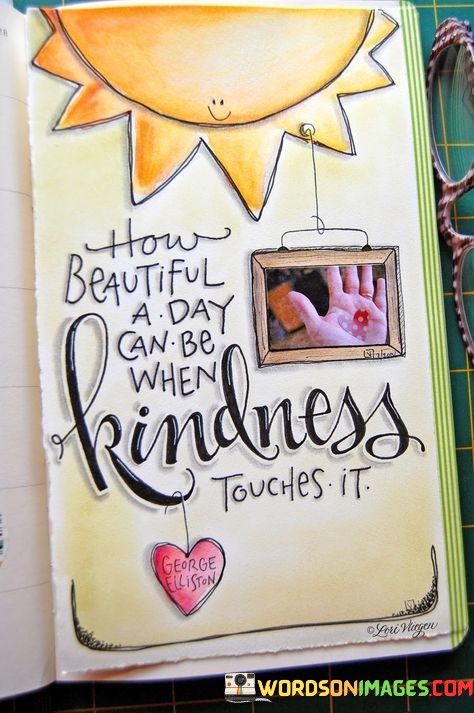 How
BEAUTIFUL
A·DAY
CAN·BE
WHEN
kindness
TOUCHES·IT.
GEORGE
ELLISTON
©Lori Vliegen
WORDSONIMAGES.COM